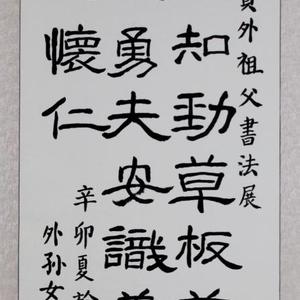 外祖父書法展
知勁草板
勇夫安識
懷仁
辛卯夏
外孫女